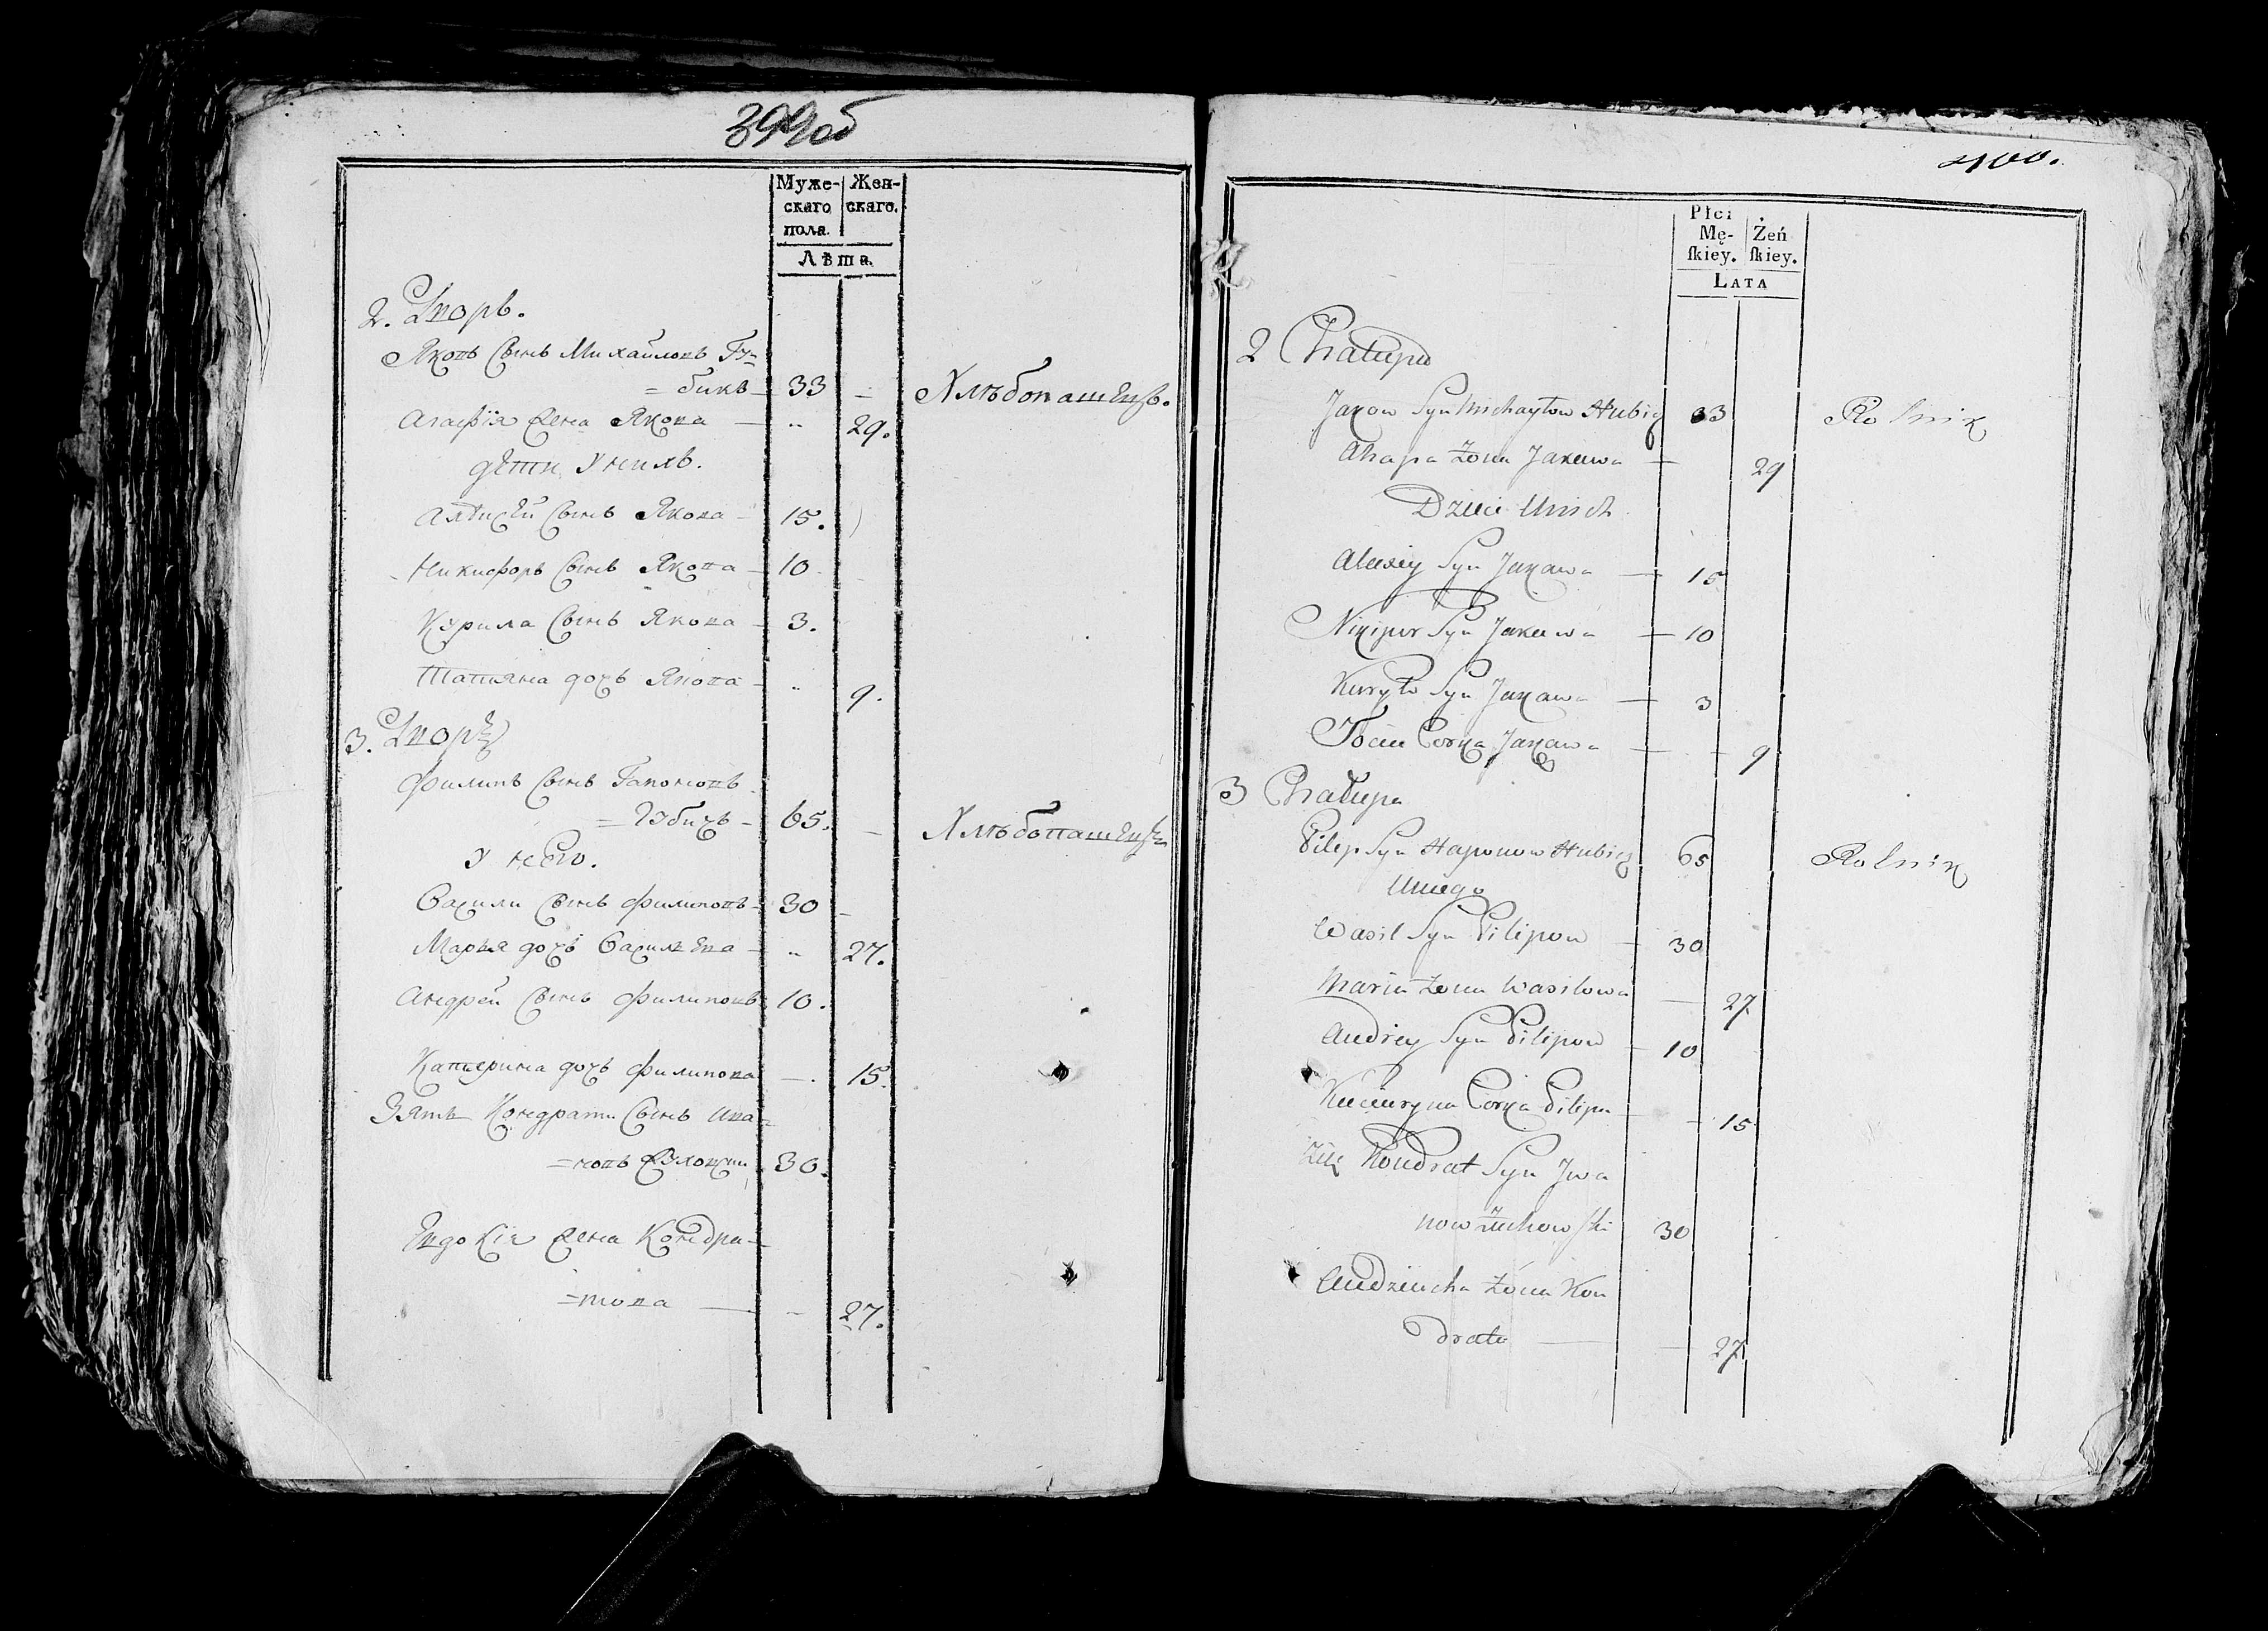 399 об
Муже-
скаго
пола.
Жен-
скаго.
Лѣта.
2. Дворъ.
Яковъ Сынъ Михайловъ Гу=
=бичъ 33 Хлѣбопашецъ.
Агафїя Жена Якова — 29.
Дети У нихъ.
Алексѣй Сынъ Якова — 15.
Никифоръ Сынъ Якова — 10
Курила Сынъ Якова — 3.
Татияна дочъ Якова — 9.
3. Дворъ
Филипъ Сынъ Гапоновъ
=Губичъ — 65. Хлѣбопашецъ
У него.
Васили Сынъ Филиповъ — 30
Марья дочъ Василѣва — 27.
Андрей Сынъ Филиповъ 10.
Катерина дочъ Филипова — 15.
Зять Кондрати Сынъ Ива=
=новъ Жуховски 30.
Евдокія Жена Кондра=
=това — 27.
400.
Płci
Mę-
ſkiey.
Żeń
ſkiey.
Lata
2 Chałupa
Jakow Syn Michayłow Hubicz 33 Rolnik
Ahapa Żona Jakowa — 29
Dzieci Unich
Alexiey Syn Jakowa — 15
Nikipor Syn Jakowa — 10
Kuryło Syn Jakowa — 3
Córka Jakowa — 9
3 Chałupa
Pilip Syn Haponow Hubicz 65 Rolnik
Uniego
Wasil Syn Pilipow — 30
Maria Żona Wasilowa — 27
Andrey Syn Pilipow — 10
Kacieryna Córka Pilipa — 15
Zięć Kondrat Syn Iwa
now Żuchowſki 30
Audziucha Żona Kon
drata — 27